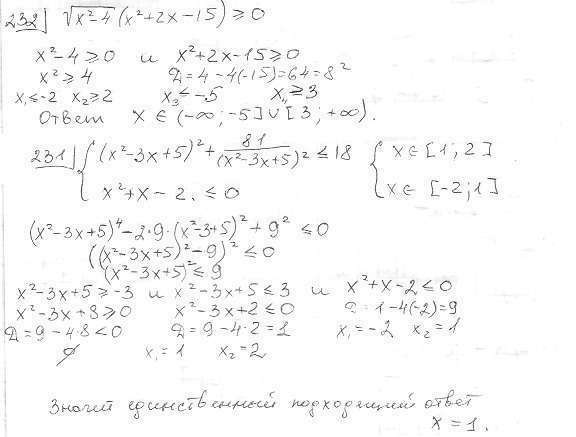 232] √x²-4 (x²+2x-15) ≥ 0
x²-4 ≥ 0 и x²+2x-15 ≥ 0
x² ≥ 4 Д = 4-4(-15) = 64 = 8²
x₁ ≤ -2 x₂ ≥ 2 x₃ ≤ -5 x₄ ≥ 3
Ответ x ∈ (-∞; -5] ∪ [3; +∞).
231] { (x²-3x+5)² + 81/(x²-3x+5)² ≤ 18 { x ∈ [1; 2]
x²+x-2. ≤ 0 x ∈ [-2; 1]
(x²-3x+5)⁴ - 2·9·(x²-3+5)² + 9² ≤ 0
((x²-3x+5)² - 9)² ≤ 0
(x²-3x+5)² ≤ 9
x²-3x+5 ≥ -3 и x²-3x+5 ≤ 3 и x²+x-2 ≤ 0
x²-3x+8 ≥ 0 x²-3x+2 ≤ 0 Д = 1-4(-2) = 9
Д = 9-4·8 < 0 Д = 9-4·2 = 1 x₁ = -2 x₂ = 1
∅ x₁ = 1 x₂ = 2
Значит единственный подходящий ответ
x = 1.